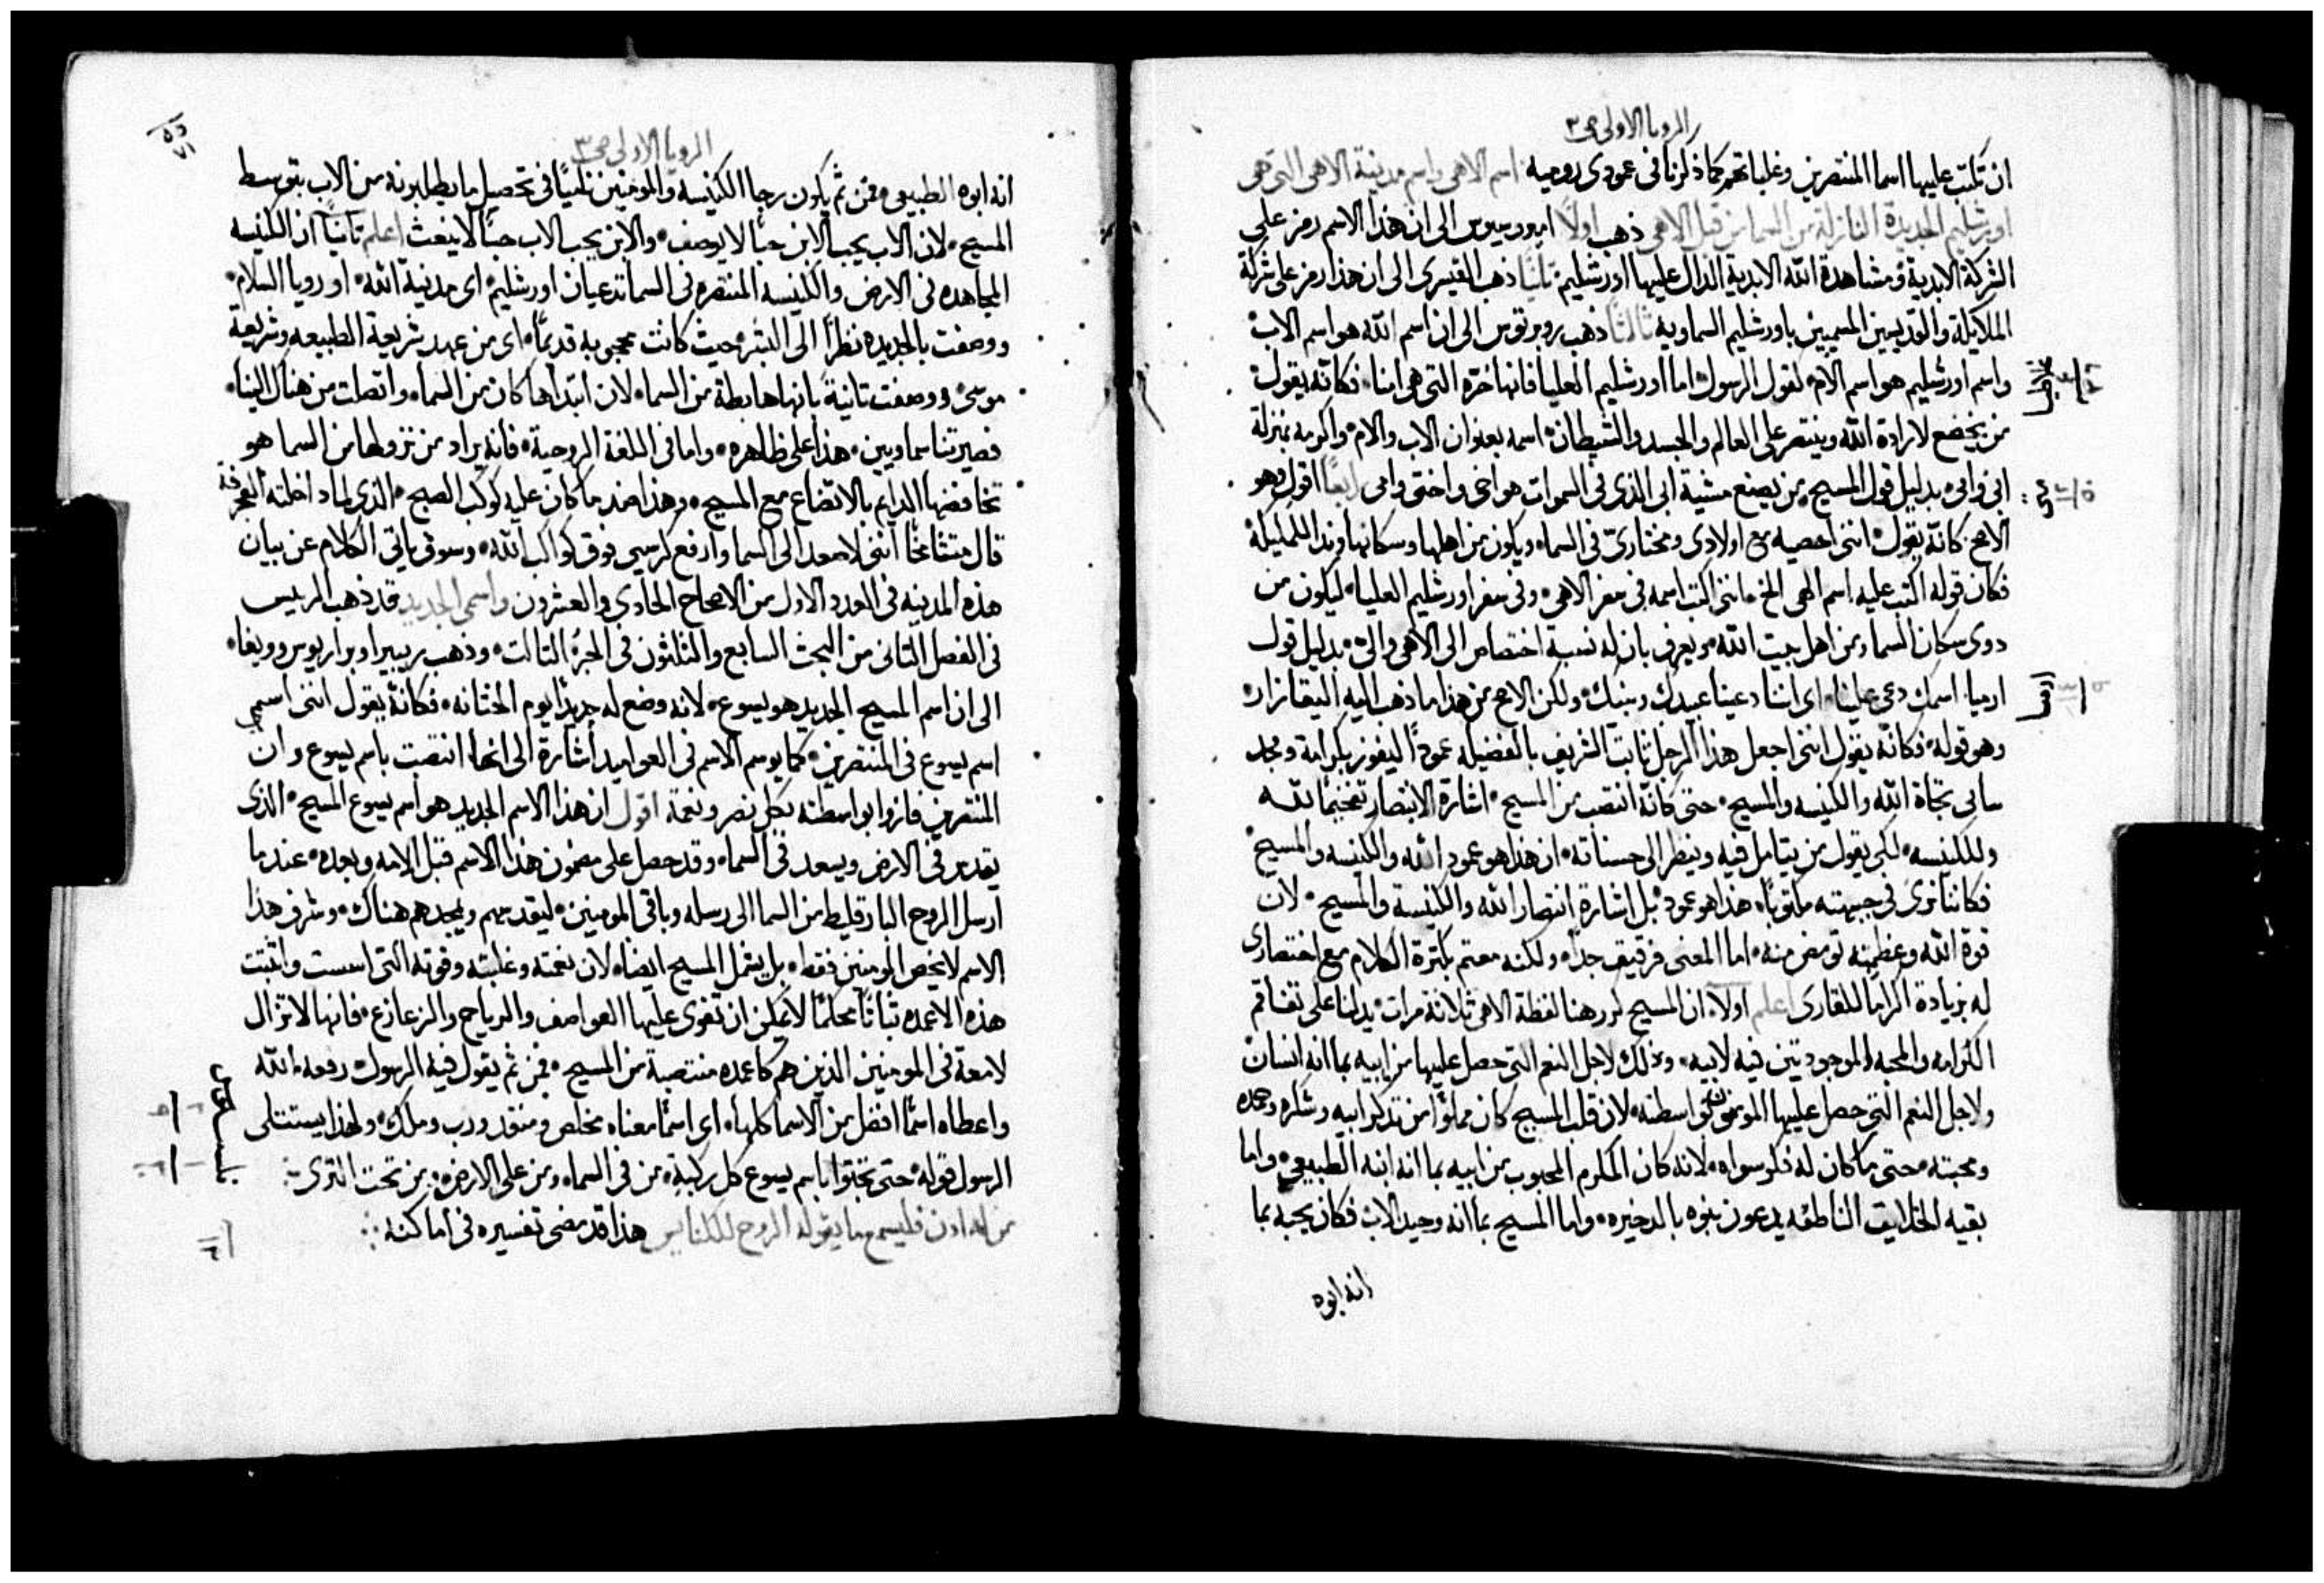 الرويا الاولى ص٣
ان تكتب عليها اسما المنتصرين وغلباتهم كما ذكرنا في عمودي روميه اسم الاهي واسم مدينة الاهي التي هي
اورشليم الجديدة النازلة من السما من قبل الاهي ذهب اولًا امبروسيوس الى ان هذا الاسم رمز على
الشركة الابدية ومشاهدة الله الابدية الدال عليها اورشليم ثانيًا ذهب القيسري الى ان هذا رمز على شركة
الملايكة والقديسين المسميين باورشليم السماويه ثالثًا ذهب روبرتوس الى ان اسم الله هو اسم الاب
واسم اورشليم هو اسم الام لقول الرسول اما اورشليم العليا فانها حرة التي هي امنا فكانه يقول
من يخضع لارادة الله وينتصر على العالم والجسد والشيطان اسمه بعنوان الاب والام واكرمه بمنزلة
ابي وامي بدليل قول المسيح من يصنع مشية ابي الذي في السموات هو اخي واختي وامي رابعًا اقول وهو
الاصح كانه يقول انني احصيه مع اولادي ومختاريّ في السما ويكون من اهلها وسكانها
فكان قوله اكتب عليه اسم الهي الخ انني اكتب اسمه في سفر الاهي وفي سفر اورشليم العليا ليكون من
ذوي سكان السما ومن اهل بيت الله ويعرف بان له نسبة اختصاص الى الاهي والي بدليل قول
ارميا اسمك دعي علينا اي اننا دعينا عبيدك وبنيك ولكن الاصح من هذا ما ذهب اليه اليقازار
وهو قوله فكانه يقول انني اجعل هذا الرجل ثابت الشريف بالفضيله عمودًا ليفوز بكرامة ومجد
سامي تجاة الله والكنيسه والمسيح حتى كانه انتصب من المسيح اشارة الانتصار تفخيمًا لله
وللكنيسه لكي يقول من يتامل فيه وينظر الى حسناته ان هذا هو عمود الله والكنيسه والمسيح
فكاننا نرى في جبهته مكتوبًا هذا هو عمود بل اشارة انتصار الله والكنيسة والمسيح لان
قوة الله وعظمته تومض منه اما المعنى فرقيق جدًا ولكنه معتم بكثرة الكلام مع اختصاري
له بزيادة اكرامًا للقاري اعلم اولًا ان المسيح كرر هنا لفظة الاهي ثلاثة مرات يدلنا على تفاقم
الكرامه والمحبه الموجودتين فيه لابيه وذلك لاجل النعم التي حصل عليها من ابيه بما انه انسان
ولاجل النعم التي حصل عليها المومنون بواسطته لان قلب المسيح كان مملوًا من تذكر ابيه وشكره وحمده
ومحبته حتى ما كان له فكر سواه لانه كان المكرم المحبوب من ابيه بما انه ابنه الطبيعي واما
بقيه الخلايق الناطقه يدعون بنوه بالدخيره واما المسيح بما انه وحيد الاب فكان يحبه بما
انه ابوه
الرويا الاولى ص٣
انه ابوه الطبيعي فمن ثم يكون رجا الكنيسه والمومنين كليًا في تحصيل ما يطلبونه من الاب بتوسط
المسيح لان الاب يحب الابن حبًا لا يوصف والابن يحب الاب حبًا لا ينعث اعلم ثانيًا ان الكنيسه
المجاهده في الارض والكنيسه المنتصره في السما تدعيان اورشليم اي مدينة الله او رويا السلام
ووصفت بالجديده نظرًا الى البشر حيث كانت محجوبه قديمًا اي من عهد شريعة الطبيعه وشريعة
موسى ووصفت ثانيةً بانها هابطة من السما لان ابتداها كان من السما واتصلت من هناك الينا
فصيرتنا سماويين هذا على ظاهره واما في اللغة الروحية فانه يراد من نزولها من السما هو
تخافضها الدايم بالاتضاع مع المسيح وهذا ضد ما كان عليه كوكب الصبح الذي لما داخلته العجرفة
قال متشامخًا انني لاصعد الى السما وارفع كرسيي فوق كواكب الله وسوف ياتي الكلام عن بيان
هذه المدينه في العدد الاول من الاصحاح الحادي والعشرون واسمي الجديد قد ذهب الرييس
في الفصل الثاني من البحث السابع والثلثون في الجزء الثالث وذهب ريبيرا وبراريوس وويغا
الى ان اسم المسيح الجديد هو يسوع لانه وضع له جديدًا يوم الختانه فكانه يقول انني اسمي
اسم يسوع في المنتصرين كما يوسم الاسم في العواميد اشارة الى انها انتصبت باسم يسوع وان
المنتصرين فازوا بواسطته بكل نصر ونعمة اقول ان هذا الاسم الجديد هو اسم يسوع المسيح الذي
يقدس في الارض ويسعد في السما وقد حصل على مضمون هذا الاسم قبل الامه وبعده عندما
ارسل الروح البارقليط من السما الى رسله وباقي المومنين ليقدسهم ويمجدهم هناك وشرف هذا
الاسم لا يخص المومنين فقط بل يشمل المسيح ايضا لان نعمته وغلبته وقوته التي اسست واثبتت
هذه الاعمده ثباتًا محكمًا لا يمكن ان تقوى عليها العواصف والرياح والزعازع فانها لا تزال
لامعة في المومنين الذين هم كاعمده منتصبة من المسيح فمن ثم يقول فيه الرسول رفعه الله
واعطاه اسمًا افضل من الاسما كلها اي اسمًا معناه مخلص ومنقذ ورب وملك ولهذا يستتلى
الرسول قوله حتى تجثوا باسم يسوع كل ركبة من في السما ومن على الارض ومن تحت الثرى
من له اذن فليسمع ما يقوله الروح للكنايس هذا قد مضى تفسيره في اماكنه